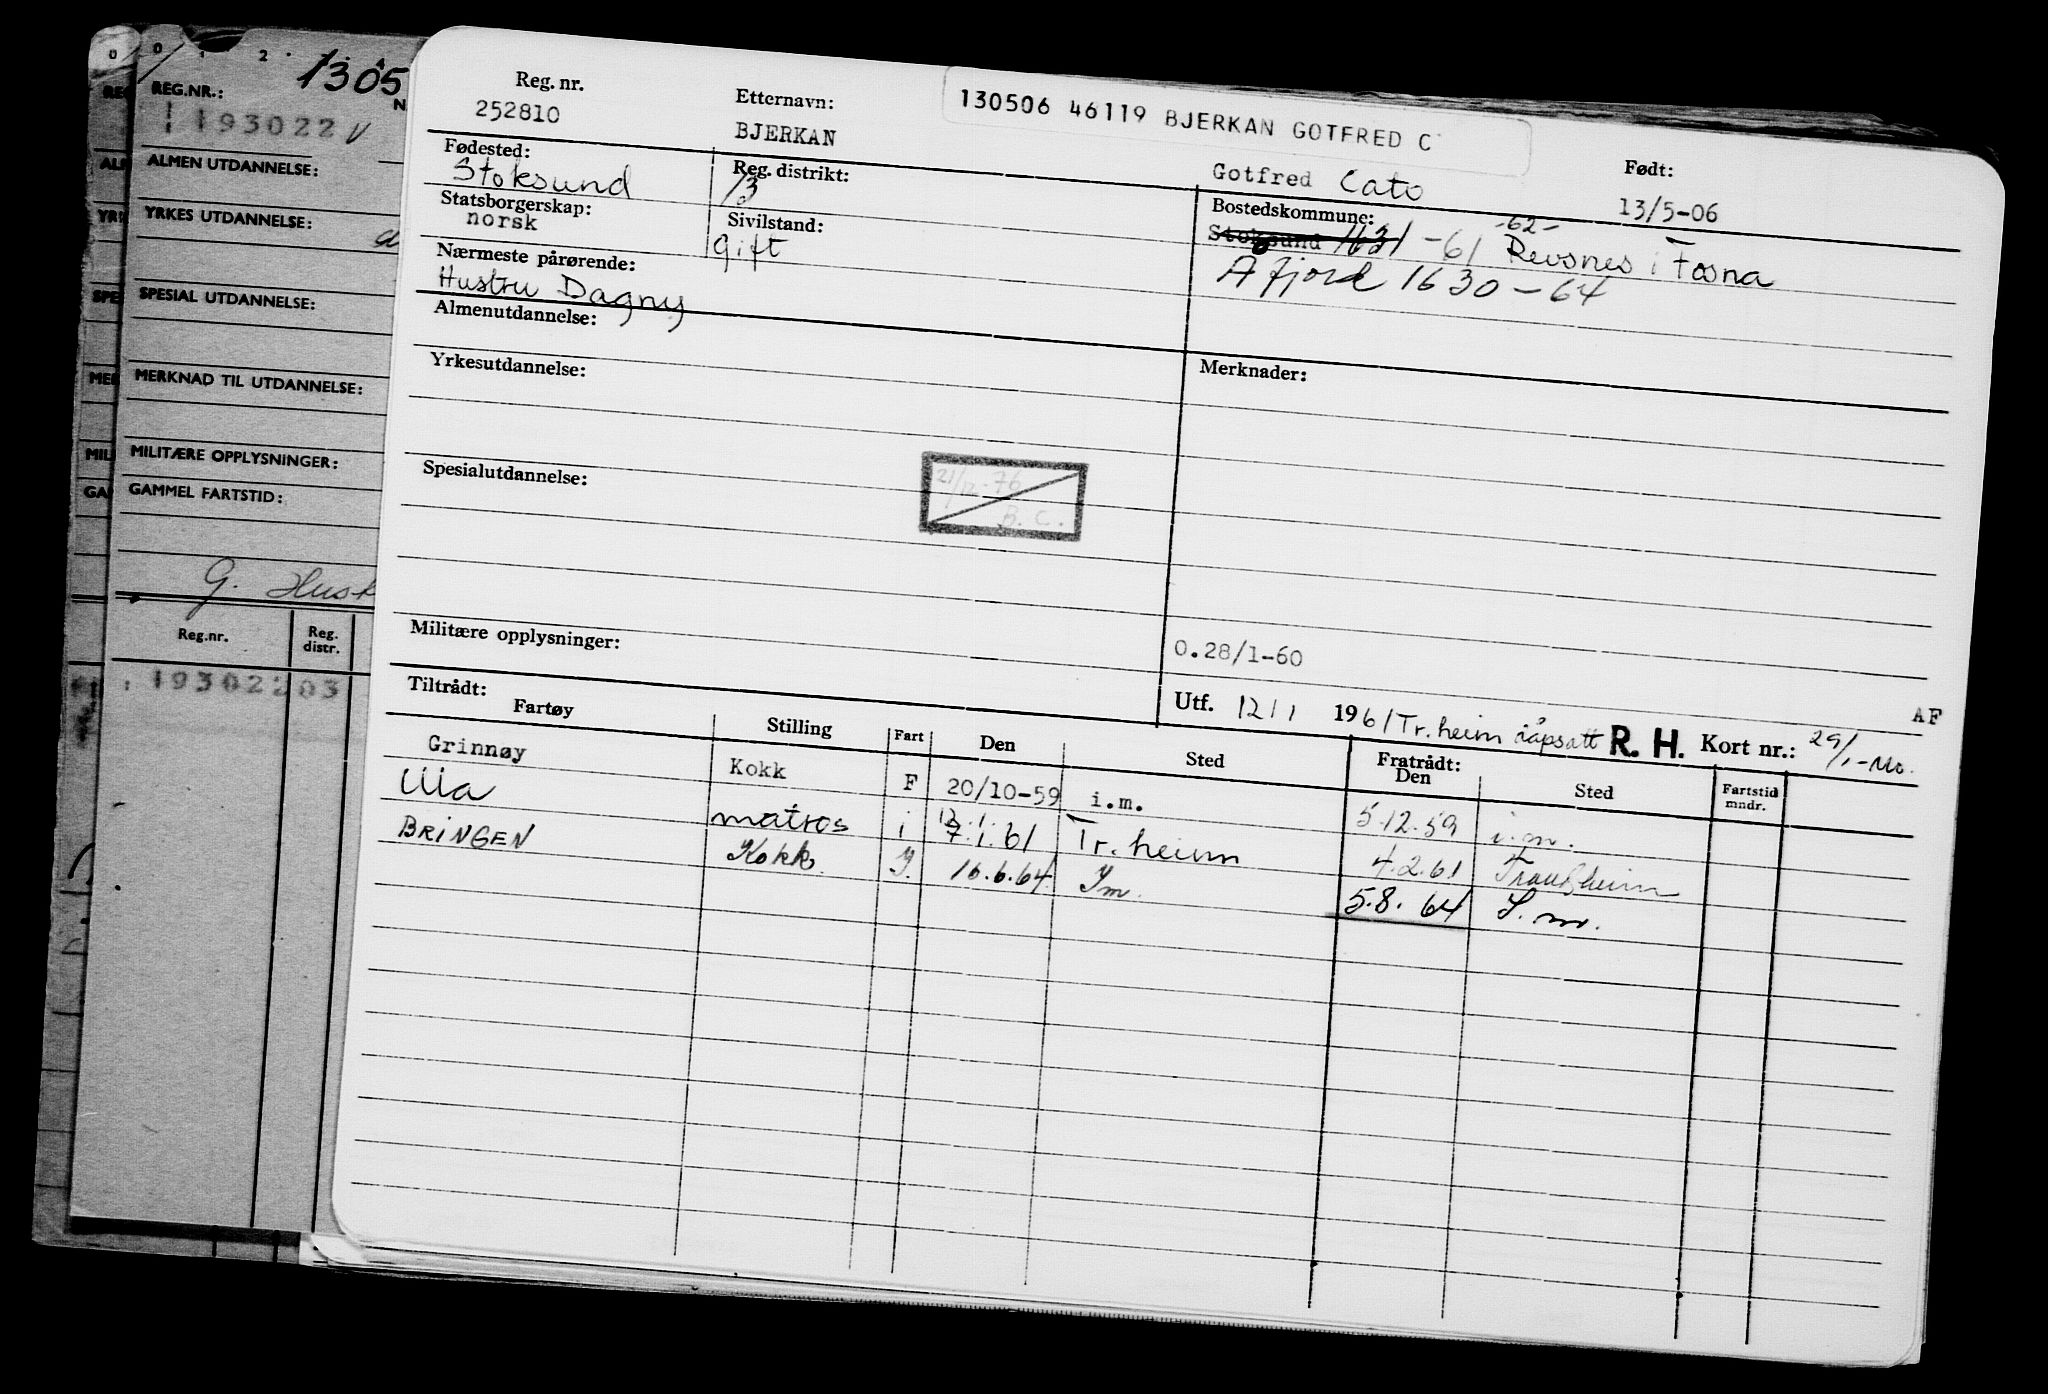 0 0 1 2
1305
REG.NR.:
193022 V
ALMEN UTDANNELSE:
YRKES UTDANNELSE:
SPESIAL UTDANNELSE:
MERKNAD TIL UTDANNELSE:
MILITÆRE OPPLYSNINGER:
GAMMEL FARTSTID:
G. Husk
Reg.nr. Reg. distr.
193022 03
130506 46119 BJERKAN GOTFRED C
Reg. nr. Etternavn: Født:
252810 BJERKAN Gotfred Cato 13/5-06
Fødested: Reg. distrikt: Bostedskommune:
Stoksund 13 Stoksund 1631 -61 -62- Revsnes i Fosna
Statsborgerskap: Sivilstand:
norsk gift Åfjord 1630-64
Nærmeste pårørende:
Hustru Dagny
Almenutdannelse:
Yrkesutdannelse: Merknader:
Spesialutdannelse:
21/12-76
B. C.
Militære opplysninger: 0.28/1-60
Utf. 12/1 1961 Tr.heim AF
R. H. Kort nr.: 29/1-
Tiltrådt: Fratrådt:
Fartøy Stilling Fart Den Sted Den Sted Fartstid mndr.
Grinnøy Kokk F 20/10-59 i.m. 5.12.59 i.m.
Ulla matros i 12.1. 7.1.61 Tr.heim 4.2.61 Trondheim
BRINGEN Kokk. I. 16.6.64 Im. 5.8.64 I.m.